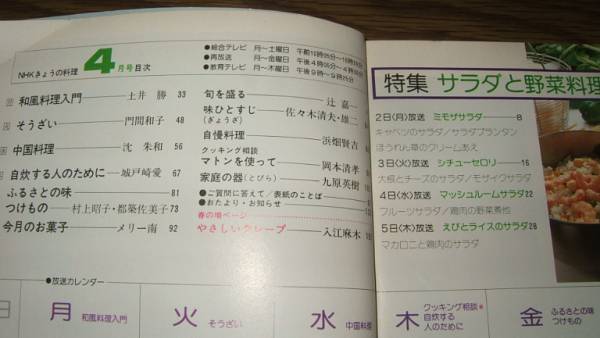 NHKきょうの料理 4月号目次
●総合テレビ 月〜土曜日
●再放送 月〜金曜日
●教育テレビ 月〜木曜日 午後9時〜9時25分
和風料理入門 土井 勝 33
そうざい 門間和子 48
中国料理 沈 朱和 56
自炊する人のために 城戸崎愛 67
ふるさとの味 81
つけもの 村上昭子・都築佐美子 73
今月のお菓子 メリー南 92
旬を盛る 辻 嘉一
味ひとすじ 佐々木清夫・雄二
(ぎょうざ)
自慢料理 浜畑賢吉
クッキング相談
マトンを使って 岡本清孝
家庭の器(とびら) 九原英樹
●ご質問に答えて/表紙のことば
●おたより・お知らせ
春の増ページ
やさしいクレープ 入江麻木
●放送カレンダー
日
月 和風料理入門
火 そうざい
水 中国料理
特集 サラダと野菜料理
2日(月)放送 ミモザサラダ 8
キャベツのサラダ/サラダプランタン
ほうれん草のクリームあえ
3日(火)放送 シチューセロリ 16
大根とチーズのサラダ/モザイクサラダ
4日(水)放送 マッシュルームサラダ 22
フルーツサラダ/鶏肉の野菜煮
5日(木)放送 えびとライスのサラダ 28
マカロニと鶏肉のサラダ
木 クッキング相談
自炊する
人のために
金 ふるさとの味
つけもの